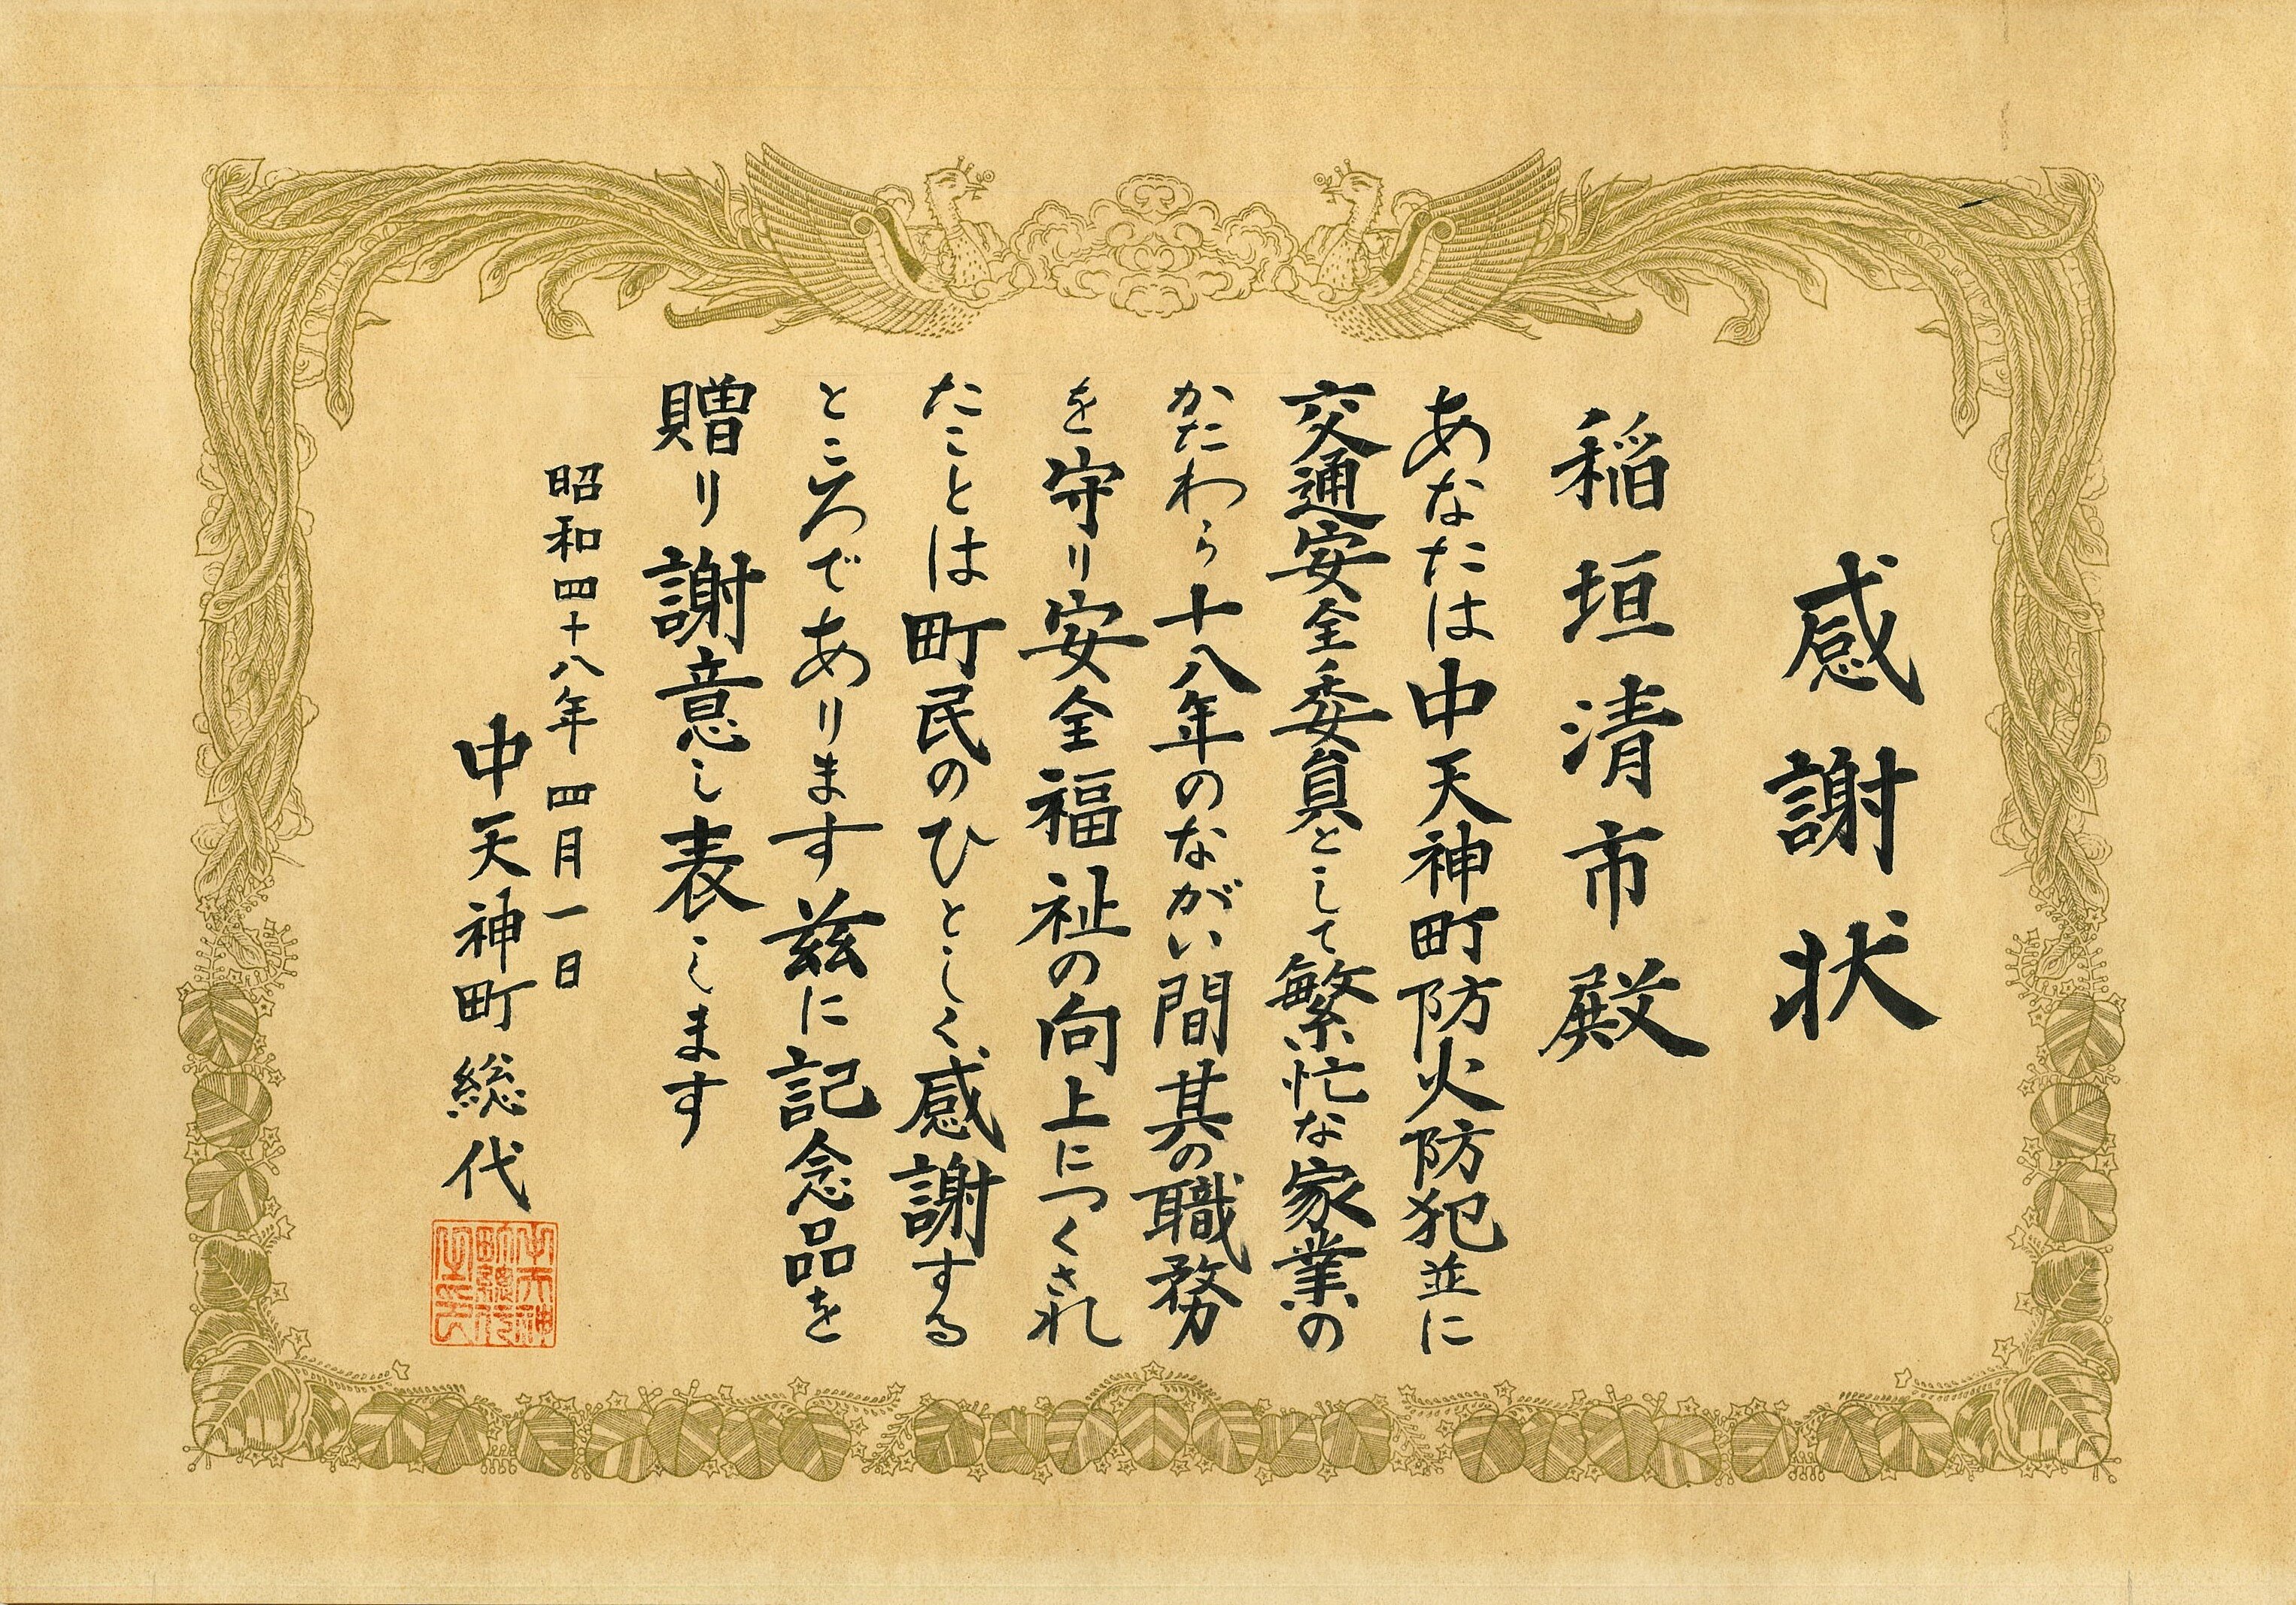 感謝状
稲垣清市殿
あなたは中天神町防火防犯並に
交通安全委員として繁忙な家業の
かたわら十八年のながい間其の職務
を守り安全福祉の向上につくされ
たことは町民のひとしく感謝する
ところであります茲に記念品を
贈り謝意し表します
昭和四十八年四月一日
中天神町総代